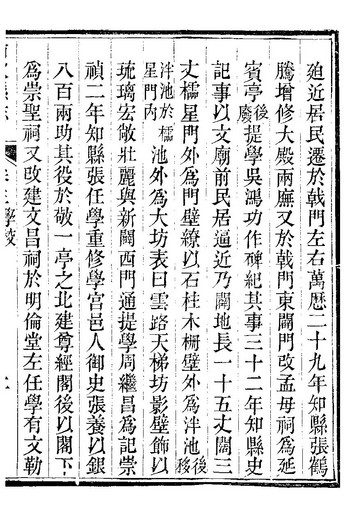 廹近居民遷於戟門左右萬歷二十九年知縣張鶴
騰增修大殿兩廡又於戟門東闢門改孟母祠爲延
賓亭後廢提學吳鴻功作碑紀其事三十二年知縣史
記事以文廟前民居逼近乃闢地長一十五丈闊三
丈櫺星門外爲門壁繚以石柱木柵壁外爲泮池後移
泮池於櫺星門內池外爲大坊表曰雲路天梯坊影壁飾以
琉璃宏敞壯麗與新闢西門通提學周繼昌爲記崇
禎二年知縣張任學重修學宮邑人御史張養以銀
八百兩助其役於敬一亭之北建尊經閣後以閣下
爲崇聖祠又改建文昌祠於明倫堂左任學有文勒
學校